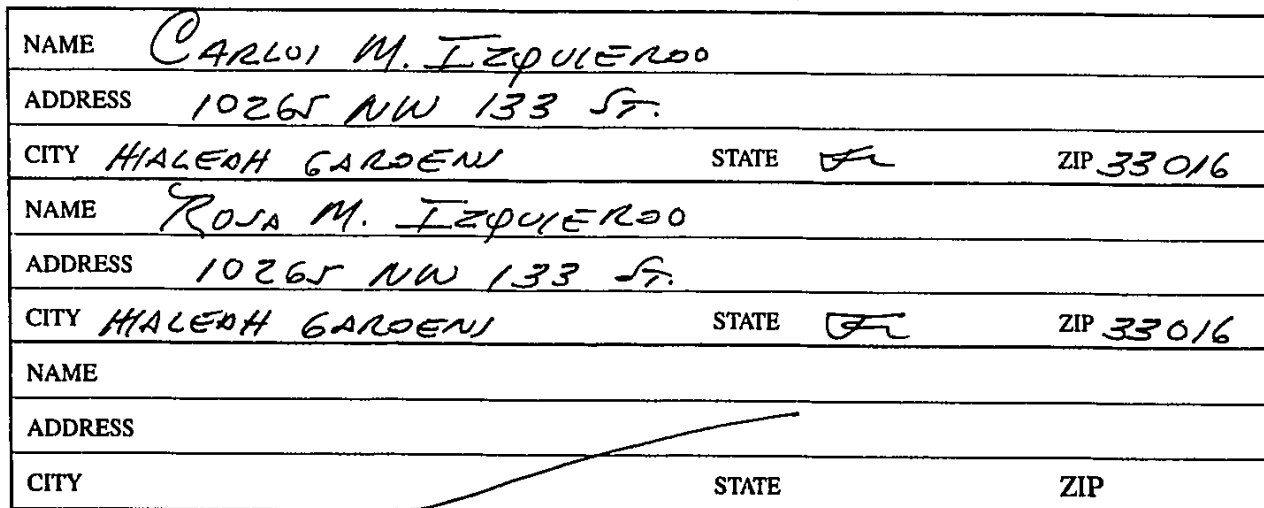 NAME CARLOS M. IZQUIERDO
ADDRESS 10265 NW 133 ST.
CITY HIALEAH GARDENS STATE FL ZIP 33016
NAME ROSA M. IZQUIERDO
ADDRESS 10265 NW 133 ST.
CITY HIALEAH GARDENS STATE FL ZIP 33016
NAME
ADDRESS
CITY STATE ZIP